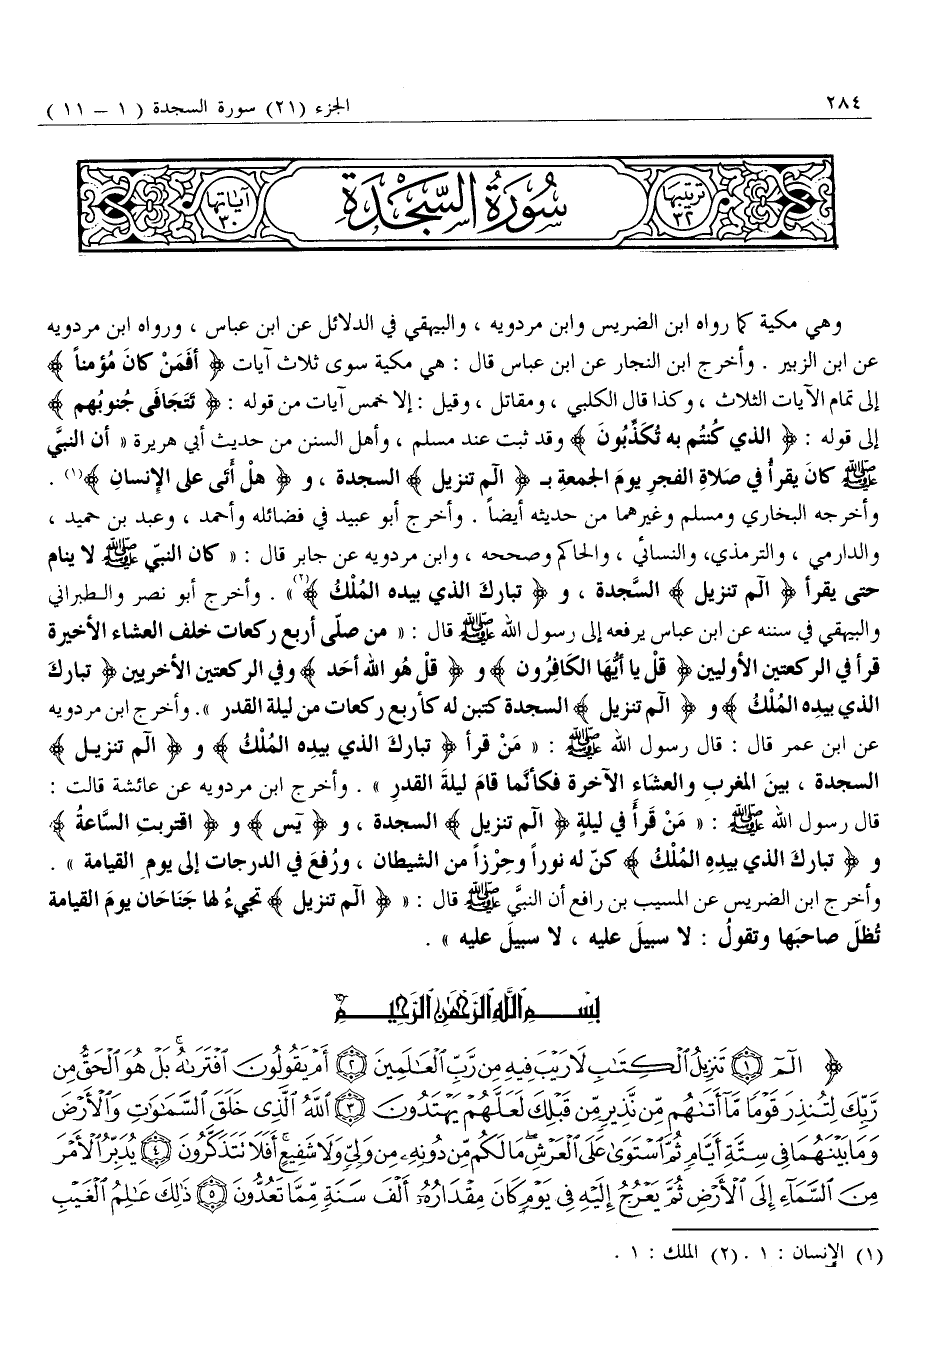 ٢٨٤
الجزء (٢١) سورة السجدة ( ١ – ١١ )
ترتيبها ٣٢
سُورَةُ السَّجْدَةِ
آياتها ٣٠
وهي مكية كما رواه ابن الضريس وابن مردويه ، والبيهقي في الدلائل عن ابن عباس ، ورواه ابن مردويه
عن ابن الزبير . وأخرج ابن النجار عن ابن عباس قال : هي مكية سوى ثلاث آيات ﴿ أفَمَنْ كانَ مُؤمناً ﴾
إلى تمام الآيات الثلاث ، وكذا قال الكلبي ، ومقاتل ، وقيل : إلا خمس آيات من قوله : ﴿ تَتَجافَى جُنوبُهم ﴾
إلى قوله : ﴿ الذي كُنتُم به تُكَذِّبُونَ ﴾ وقد ثبت عند مسلم ، وأهل السنن من حديث أبي هريرة « أن النبيَّ
ﷺ كانَ يقرأُ في صَلاةِ الفجرِ يومَ الجمعةِ بـ ﴿ الٓم تنزيل ﴾ السجدة ، و ﴿ هلْ أتَى على الإنسانِ ﴾(١) .
وأخرجه البخاري ومسلم وغيرهما من حديثه أيضاً . وأخرج أبو عبيد في فضائله وأحمد ، وعبد بن حميد ،
والدارمي ، والترمذي، والنسائي ، والحاكم وصححه ، وابن مردويه عن جابر قال : « كان النبيّ ﷺ لا ينام
حتى يقرأ ﴿ الٓم تنزيل ﴾ السَّجدة ، و ﴿ تباركَ الذي بيده المُلْكُ ﴾(٢)» . وأخرج أبو نصر والطبراني
والبيهقي في سننه عن ابن عباس يرفعه إلى رسول الله ﷺ قال : « من صلّى أربع ركعات خلف العشاء الأخيرة
قرأ في الركعتين الأوليين ﴿ قلْ يا أيُّها الكَافِرُون ﴾ و ﴿ قلْ هُو الله أحَد ﴾ وفي الركعتين الأخريين ﴿ تبارك
الذي بيدِه المُلْكُ ﴾ و ﴿ الٓم تنزيل ﴾ السجدة كتبن له كأربع ركعات من ليلة القدر » . وأخرج ابن مردويه
عن ابن عمر قال : قال رسول الله ﷺ : « مَنْ قرأ ﴿ تباركَ الذي بيده المُلْكُ ﴾ و ﴿ الٓم تنزيل ﴾
السجدة ، بينَ المغربِ والعشاء الآخرة فكأنَّما قامَ ليلةَ القدرِ » . وأخرج ابن مردويه عن عائشة قالت :
قال رسول الله ﷺ : « مَنْ قَرأَ في ليلةٍ ﴿ الٓم تنزيل ﴾ السجدة ، و ﴿ يٓس ﴾ و ﴿ اقتربتِ السَّاعةُ ﴾
و ﴿ تباركَ الذي بيدِهِ المُلْكُ ﴾ كنّ له نوراً وحِرْزاً من الشيطان ، ورُفعَ في الدرجات إلى يومِ القيامة » .
وأخرج ابن الضريس عن المسيب بن رافع أن النبيَّ ﷺ قال : « ﴿ الٓم تنزيل ﴾ تجيءُ لها جَنَاحَان يومَ القيامة
تُظلّ صاحبَها وتقولُ : لا سبيلَ عليه ، لا سبيلَ عليه » .
بِسْمِ اللَّهِ الرَّحْمَٰنِ الرَّحِيمِ
﴿ الٓمٓ ١ تَنزِيلُ ٱلْكِتَٰبِ لَا رَيْبَ فِيهِ مِن رَّبِّ ٱلْعَٰلَمِينَ ٢ أَمْ يَقُولُونَ ٱفْتَرَىٰهُ ۚ بَلْ هُوَ ٱلْحَقُّ مِن
رَّبِّكَ لِتُنذِرَ قَوْمًا مَّآ أَتَىٰهُم مِّن نَّذِيرٍ مِّن قَبْلِكَ لَعَلَّهُمْ يَهْتَدُونَ ٣ ٱللَّهُ ٱلَّذِى خَلَقَ ٱلسَّمَٰوَٰتِ وَٱلْأَرْضَ
وَمَا بَيْنَهُمَا فِى سِتَّةِ أَيَّامٍ ثُمَّ ٱسْتَوَىٰ عَلَى ٱلْعَرْشِ ۖ مَا لَكُم مِّن دُونِهِۦ مِن وَلِىٍّ وَلَا شَفِيعٍ ۚ أَفَلَا تَتَذَكَّرُونَ ٤ يُدَبِّرُ ٱلْأَمْرَ
مِنَ ٱلسَّمَآءِ إِلَى ٱلْأَرْضِ ثُمَّ يَعْرُجُ إِلَيْهِ فِى يَوْمٍ كَانَ مِقْدَارُهُۥٓ أَلْفَ سَنَةٍ مِّمَّا تَعُدُّونَ ٥ ذَٰلِكَ عَٰلِمُ ٱلْغَيْبِ
(١) الإنسان : ١ . (٢) الملك : ١ .